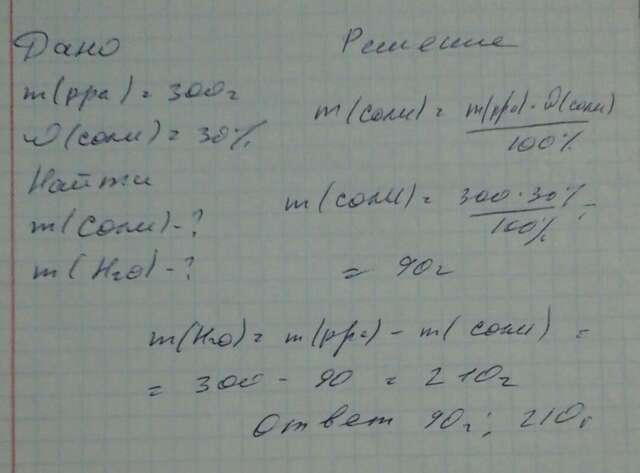 Дано
m(рра) = 300г
ω(соли) = 30%
Найти
m(соли) - ?
m(H2O) - ?
Решение
m(соли) = m(рра) · ω(соли) / 100%
m(соли) = 300 · 30% / 100% =
= 90г
m(H2O) = m(рра) - m(соли) =
= 300 - 90 = 210г
Ответ 90г; 210г